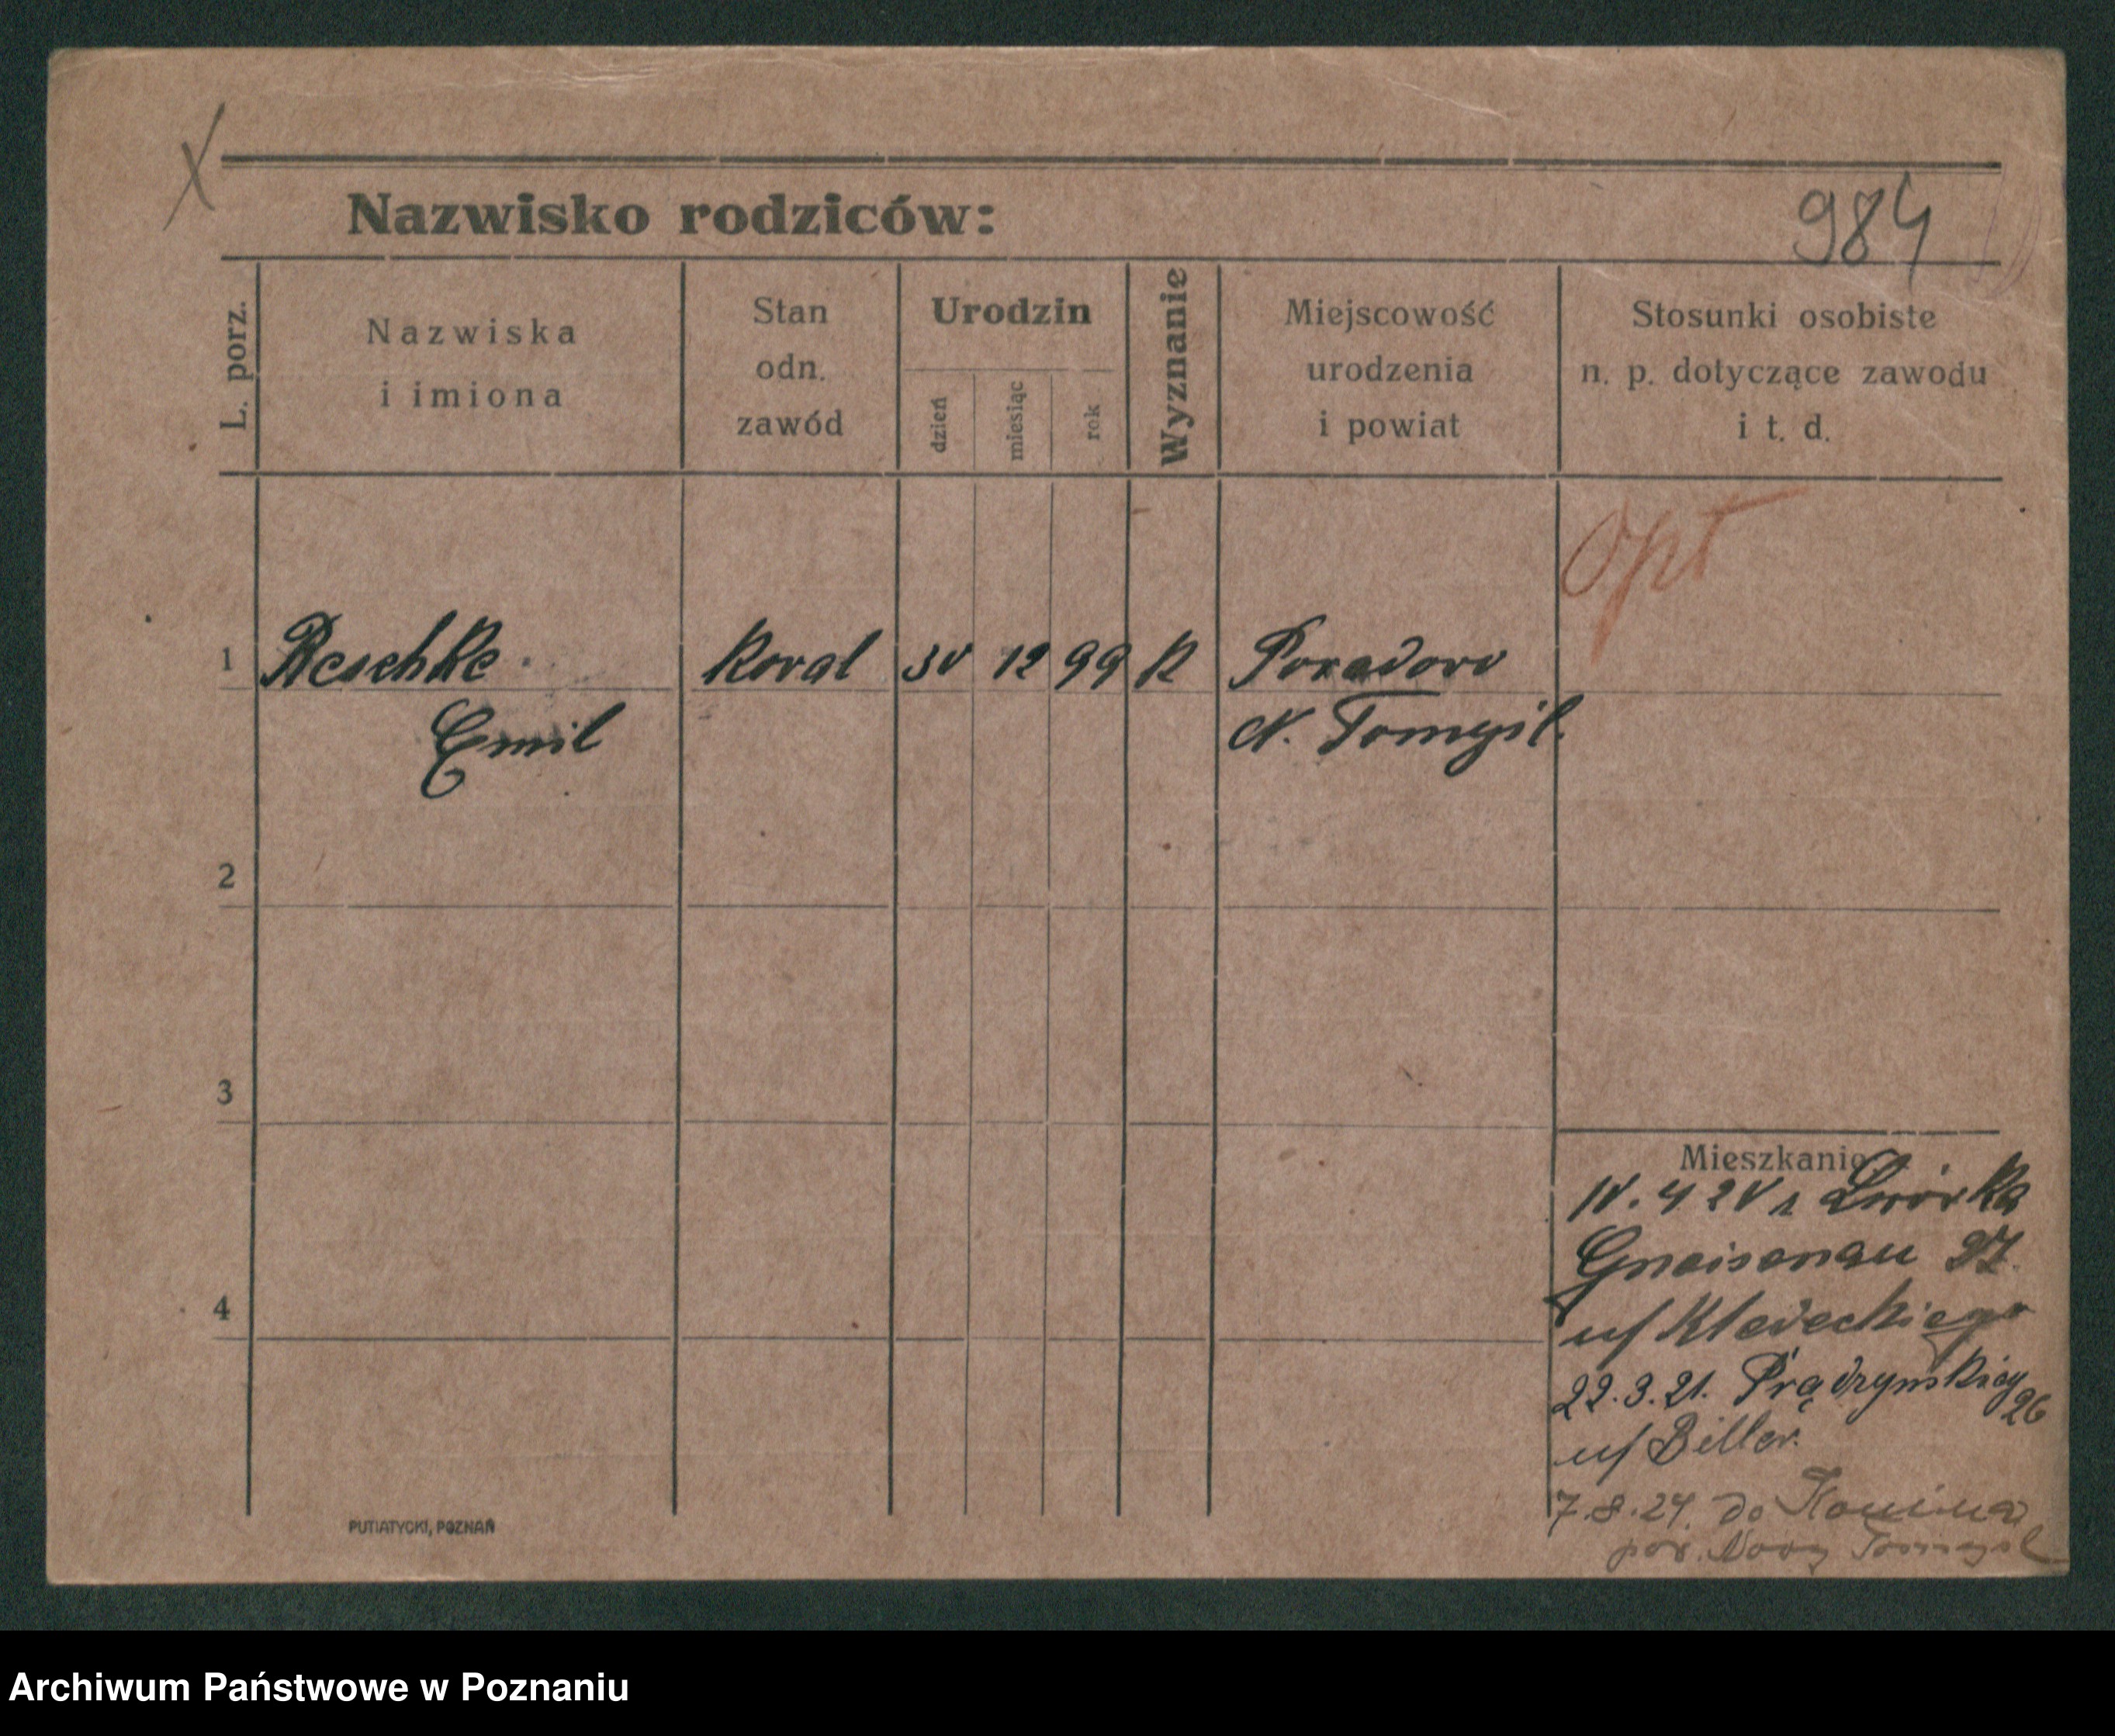 X
Nazwisko rodziców:
984
L. porz.
Nazwiska
i imiona
Stan
odn.
zawód
Urodzin
dzień
miesiąc
rok
Wyznanie
Miejscowość
urodzenia
i powiat
Stosunki osobiste
n. p. dotyczące zawodu
i t. d.
Opt
1 Reschke Kowal 30 12 99 K Paradowo
Emil N. Tomyśl.
2
3
4
Mieszkanie
10. 4 20 z Lwówka
Gneisenau
u/ Kladeckiego
22.3.21. Prądzyńskieg 26
u/ Biller.
7.8.24. do
pow. Nowy Tomyśl
PUTIATYCKI, POZNAŃ
Archiwum Państwowe w Poznaniu